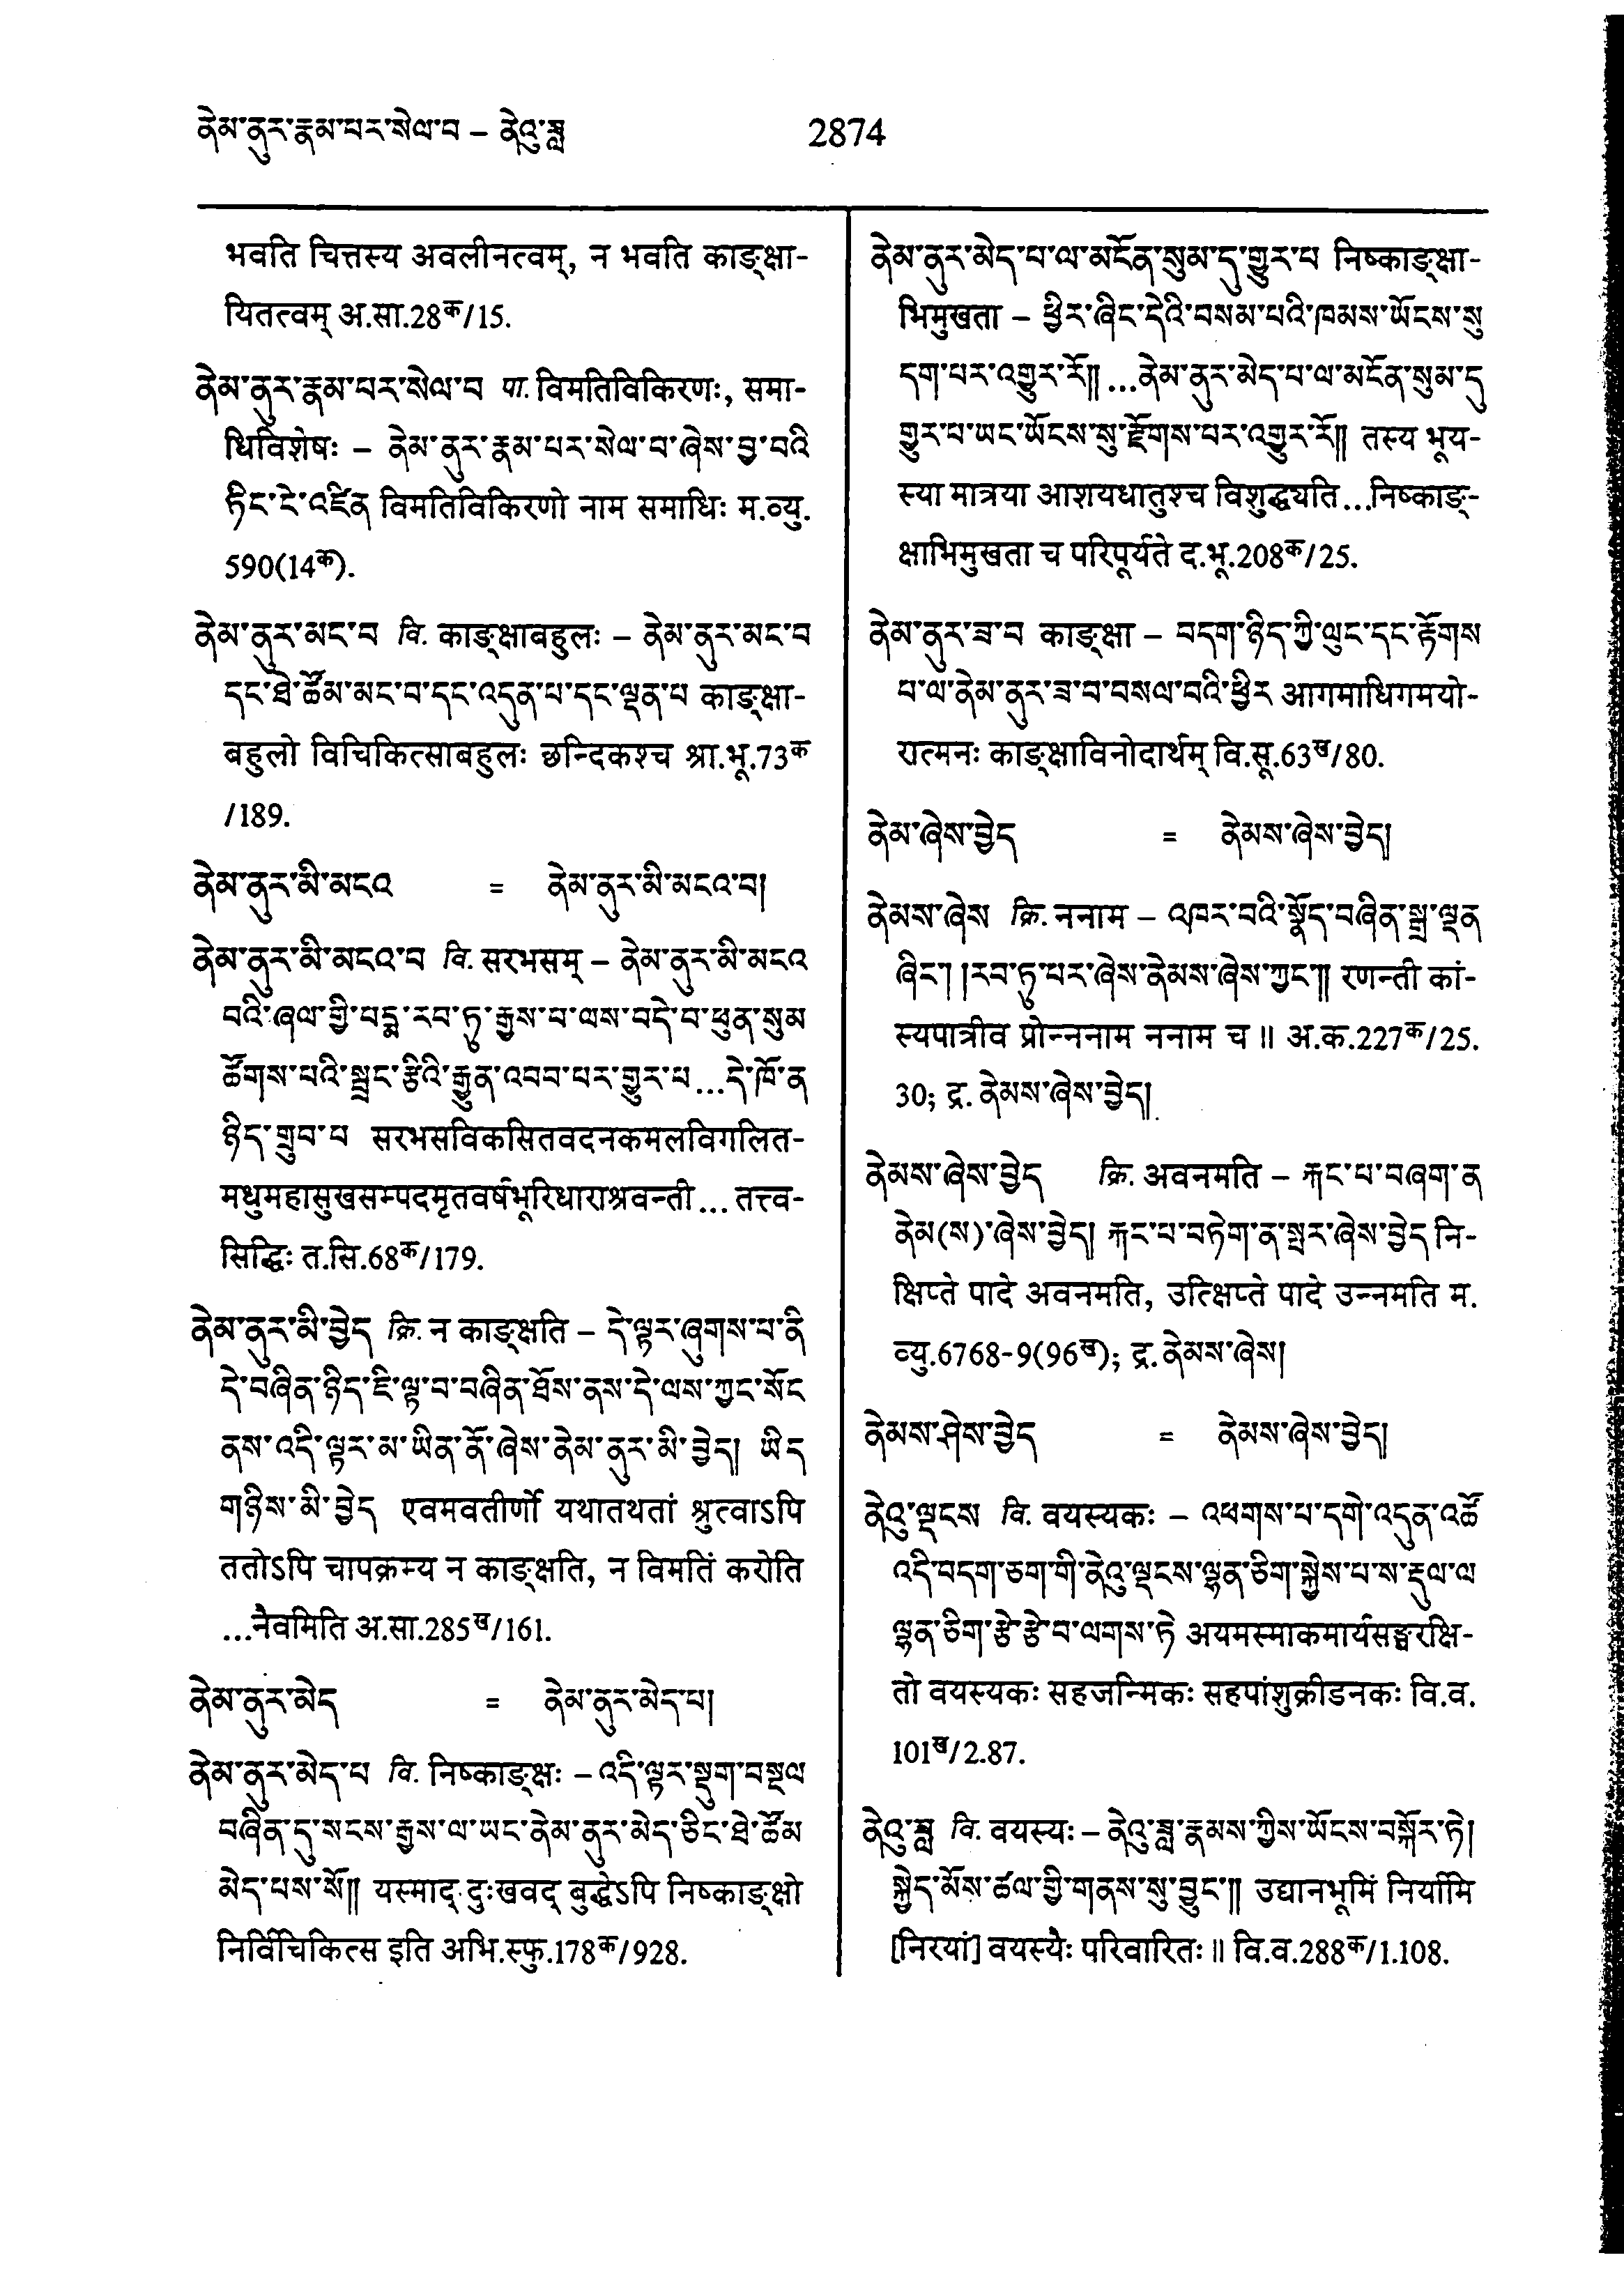 ནེམ་ནུར་རྣམ་པར་སེལ་བ – ནེའུ་ཟླ
2874
भवति चित्तस्य अवलीनत्वम्, न भवति काङ्क्षा-
यितत्वम् अ.सा.28क/15.
ནེམ་ནུར་རྣམ་པར་སེལ་བ पा. विमतिविकिरणः, समा-
धिविशेषः – ནེམ་ནུར་རྣམ་པར་སེལ་བ་ཞེས་བྱ་བའི
ཏིང་ངེ་འཛིན विमतिविकिरणो नाम समाधिः म.व्यु.
590(14क).
ནེམ་ནུར་མང་བ वि. काङ्क्षाबहुलः – ནེམ་ནུར་མང་བ
དང་ཐེ་ཚོམ་མང་བ་དང་འདུན་པ་དང་ལྡན་པ काङ्क्षा-
बहुलो विचिकित्साबहुलः छन्दिकश्च श्रा.भू.73क
/189.
ནེམ་ནུར་མི་མངའ = ནེམ་ནུར་མི་མངའ་བ།
ནེམ་ནུར་མི་མངའ་བ वि. सरभसम् – ནེམ་ནུར་མི་མངའ
བའི་ཞལ་གྱི་པདྨ་རབ་ཏུ་རྒྱས་པ་ལས་བདེ་བ་ཕུན་སུམ
ཚོགས་པའི་སྦྲང་རྩིའི་རྒྱུན་འབབ་པར་གྱུར་པ...དེ་ཁོ་ན
ཉིད་གྲུབ་པ सरभसविकसितवदनकमलविगलित-
मधुमहासुखसम्पदमृतवर्षभूरिधाराश्रवन्ती... तत्त्व-
सिद्धिः त.सि.68क/179.
ནེམ་ནུར་མི་བྱེད क्रि. न काङ्क्षति – དེ་ལྟར་ཞུགས་པ་ནི
དེ་བཞིན་ཉིད་ཇི་ལྟ་བ་བཞིན་ཐོས་ནས་དེ་ལས་ཀྱང་སོང
ནས་འདི་ལྟར་མ་ཡིན་ནོ་ཞེས་ནེམ་ནུར་མི་བྱེད། ཡིད
གཉིས་མི་བྱེད एवमवतीर्णो यथातथतां श्रुत्वाऽपि
ततोऽपि चापक्रम्य न काङ्क्षति, न विमतिं करोति
...नैवमिति अ.सा.285ख/161.
ནེམ་ནུར་མེད = ནེམ་ནུར་མེད་པ།
ནེམ་ནུར་མེད་པ वि. निष्काङ्क्षः – འདི་ལྟར་སྡུག་བསྔལ
བཞིན་དུ་སངས་རྒྱས་ལ་ཡང་ནེམ་ནུར་མེད་ཅིང་ཐེ་ཚོམ
མེད་པས་སོ༎ यस्माद् दुःखवद् बुद्धेऽपि निष्काङ्क्षो
निर्विचिकित्स इति अभि.स्फु.178क/928.
ནེམ་ནུར་མེད་པ་ལ་མངོན་སུམ་དུ་གྱུར་པ निष्काङ्क्षा-
भिमुखता – ཕྱིར་ཞིང་དེའི་བསམ་པའི་ཁམས་ཡོངས་སུ
དག་པར་འགྱུར་རོ༎ ...ནེམ་ནུར་མེད་པ་ལ་མངོན་སུམ་དུ
གྱུར་པ་ཡང་ཡོངས་སུ་རྫོགས་པར་འགྱུར་རོ༎ तस्य भूय-
स्या मात्रया आशयधातुश्च विशुद्धयति...निष्काङ्-
क्षाभिमुखता च परिपूर्यते द.भू.208क/25.
ནེམ་ནུར་ཟ་བ काङ्क्षा – བདག་ཉིད་ཀྱི་ལུང་དང་རྟོགས
པ་ལ་ནེམ་ནུར་ཟ་བ་བསལ་བའི་ཕྱིར आगमाधिगमयो-
रात्मनः काङ्क्षाविनोदार्थम् वि.सू.63ख/80.
ནེམ་ཞེས་བྱེད = ནེམས་ཞེས་བྱེད།
ནེམས་ཞེས क्रि. ननाम – འཁར་བའི་སྣོད་བཞིན་སྒྲ་ལྡན
ཞིང་། །རབ་ཏུ་པར་ཞེས་ནེམས་ཞེས་ཀྱང་༎ रणन्ती कां-
स्यपात्रीव प्रोन्ननाम ननाम च ॥ अ.क.227क/25.
30; द्र. ནེམས་ཞེས་བྱེད།
ནེམས་ཞེས་བྱེད क्रि. अवनमति – རྐང་པ་བཞག་ན
ནེམ(ས)་ཞེས་བྱེད། རྐང་པ་བཏེག་ན་སྤར་ཞེས་བྱེད नि-
क्षिप्ते पादे अवनमति, उत्क्षिप्ते पादे उन्नमति म.
व्यु.6768-9(96ख); द्र. ནེམས་ཞེས།
ནེམས་ཤེས་བྱེད = ནེམས་ཞེས་བྱེད།
ནེའུ་ལྡངས वि. वयस्यकः – འཕགས་པ་དགེ་འདུན་འཚོ
འདི་བདག་ཅག་གི་ནེའུ་ལྡངས་ལྷན་ཅིག་སྐྱེས་པ་ས་རྡུལ་ལ
ལྷན་ཅིག་རྩེ་རྩེ་བ་ལགས་ཏེ अयमस्माकमार्यसङ्घरक्षि-
तो वयस्यकः सहजन्मिकः सहपांशुक्रीडनकः वि.व.
101ख/2.87.
ནེའུ་ཟླ वि. वयस्यः – ནེའུ་ཟླ་རྣམས་ཀྱིས་ཡོངས་བསྐོར་ཏེ།
སྐྱེད་མོས་ཚལ་གྱི་གནས་སུ་བྱུང་༎ उद्यानभूमिं निर्यामि
[निरयां] वयस्यैः परिवारितः ॥ वि.व.288क/1.108.